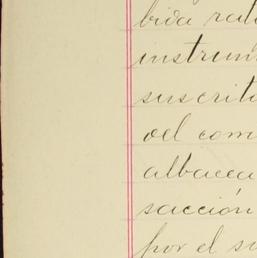 bida rati
instrum
suscrito
del com
albacea
sacción
por el su